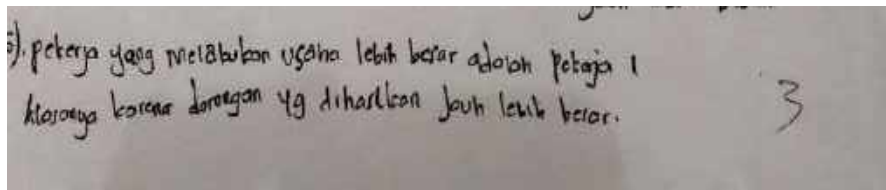 5). pekerja yang melakukan usaha lebih besar adalah pekerja 1
Alasanya karena dorongan yg dihasilkan Jauh lebih besar.
3